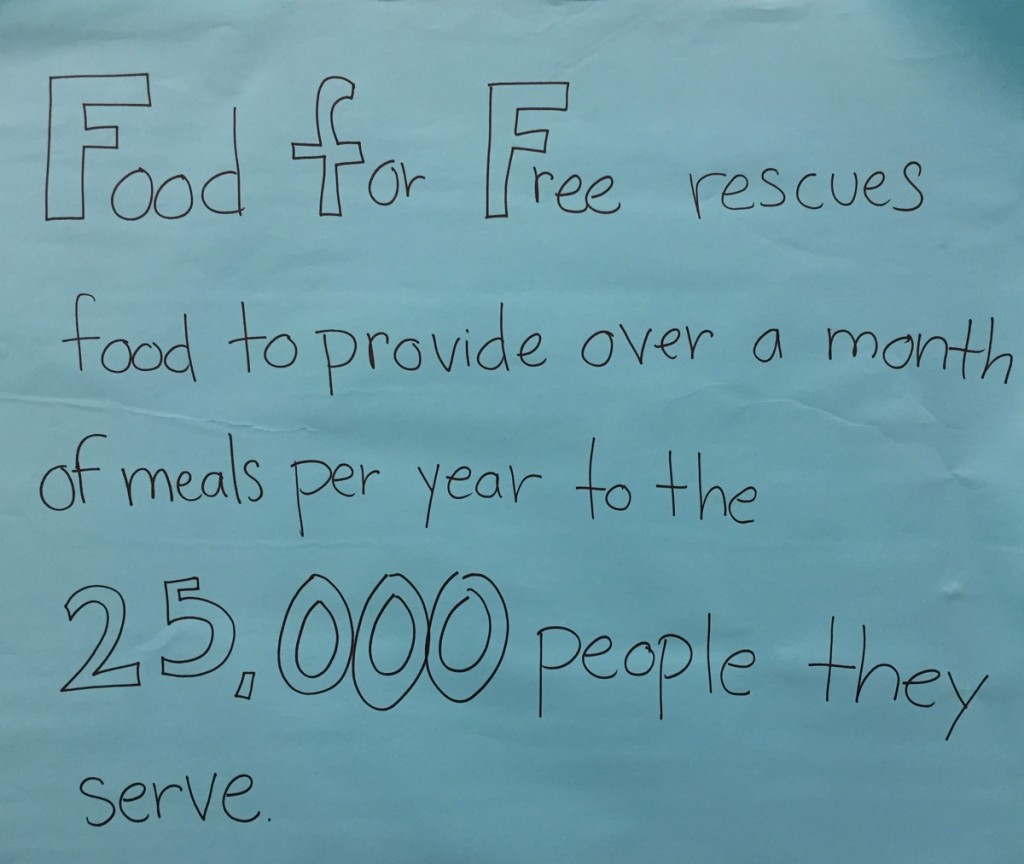 Food for Free rescues
food to provide over a month
of meals per year to the
25,000 people they
serve.